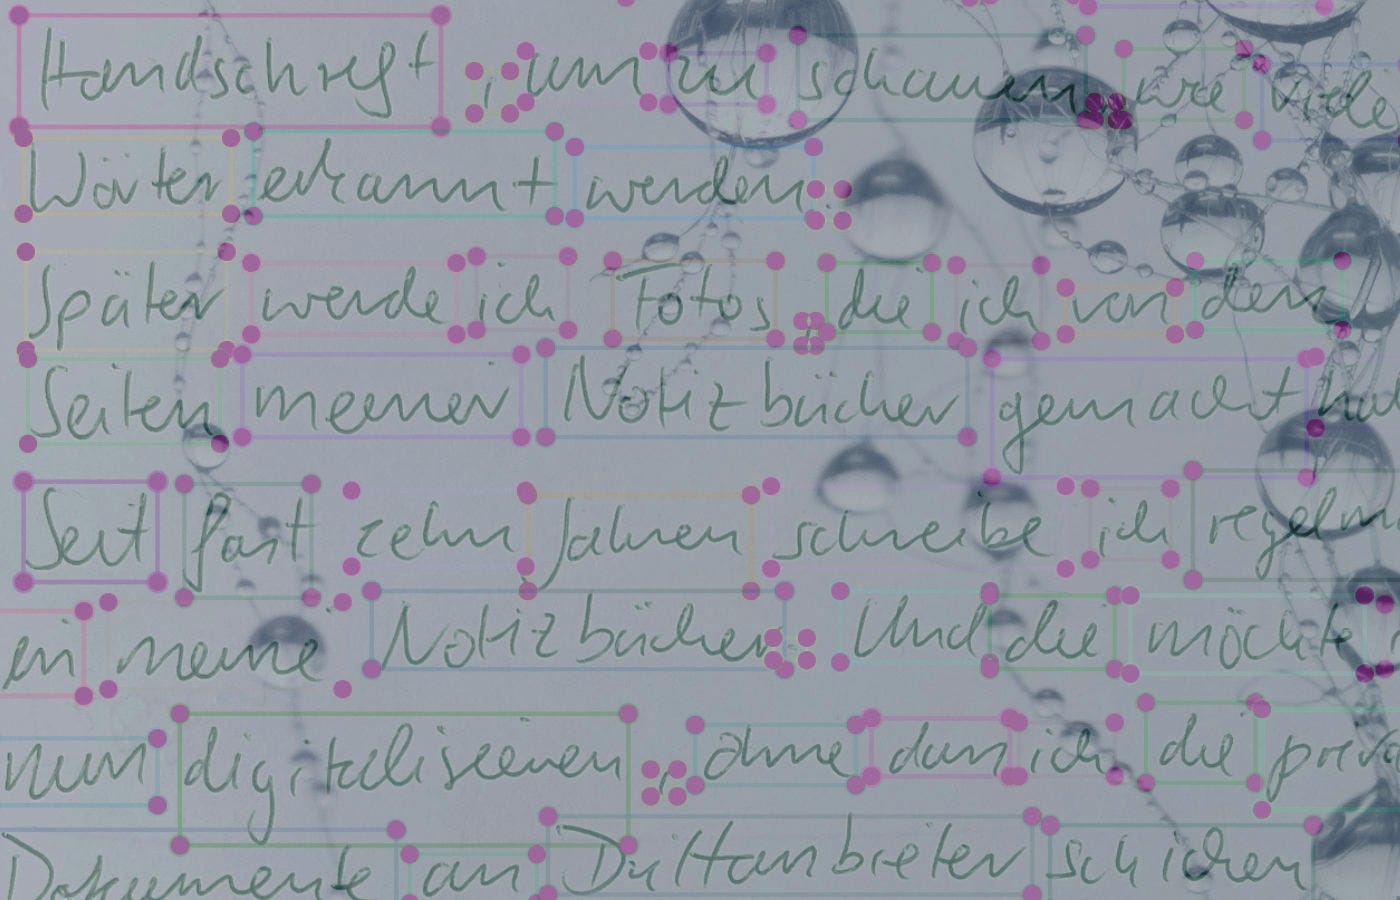 Handschrift, um zu schauen, wie viele
Wörter erkannt werden.
Später werde ich Fotos, die ich von den
Seiten meiner Notizbücher gemacht
Seit fast zehn Jahren schreibe ich
in meine Notizbücher. Und die möchte
nun digitalisieren, ohne dass ich die
Dokumente an Drittanbieter schicken